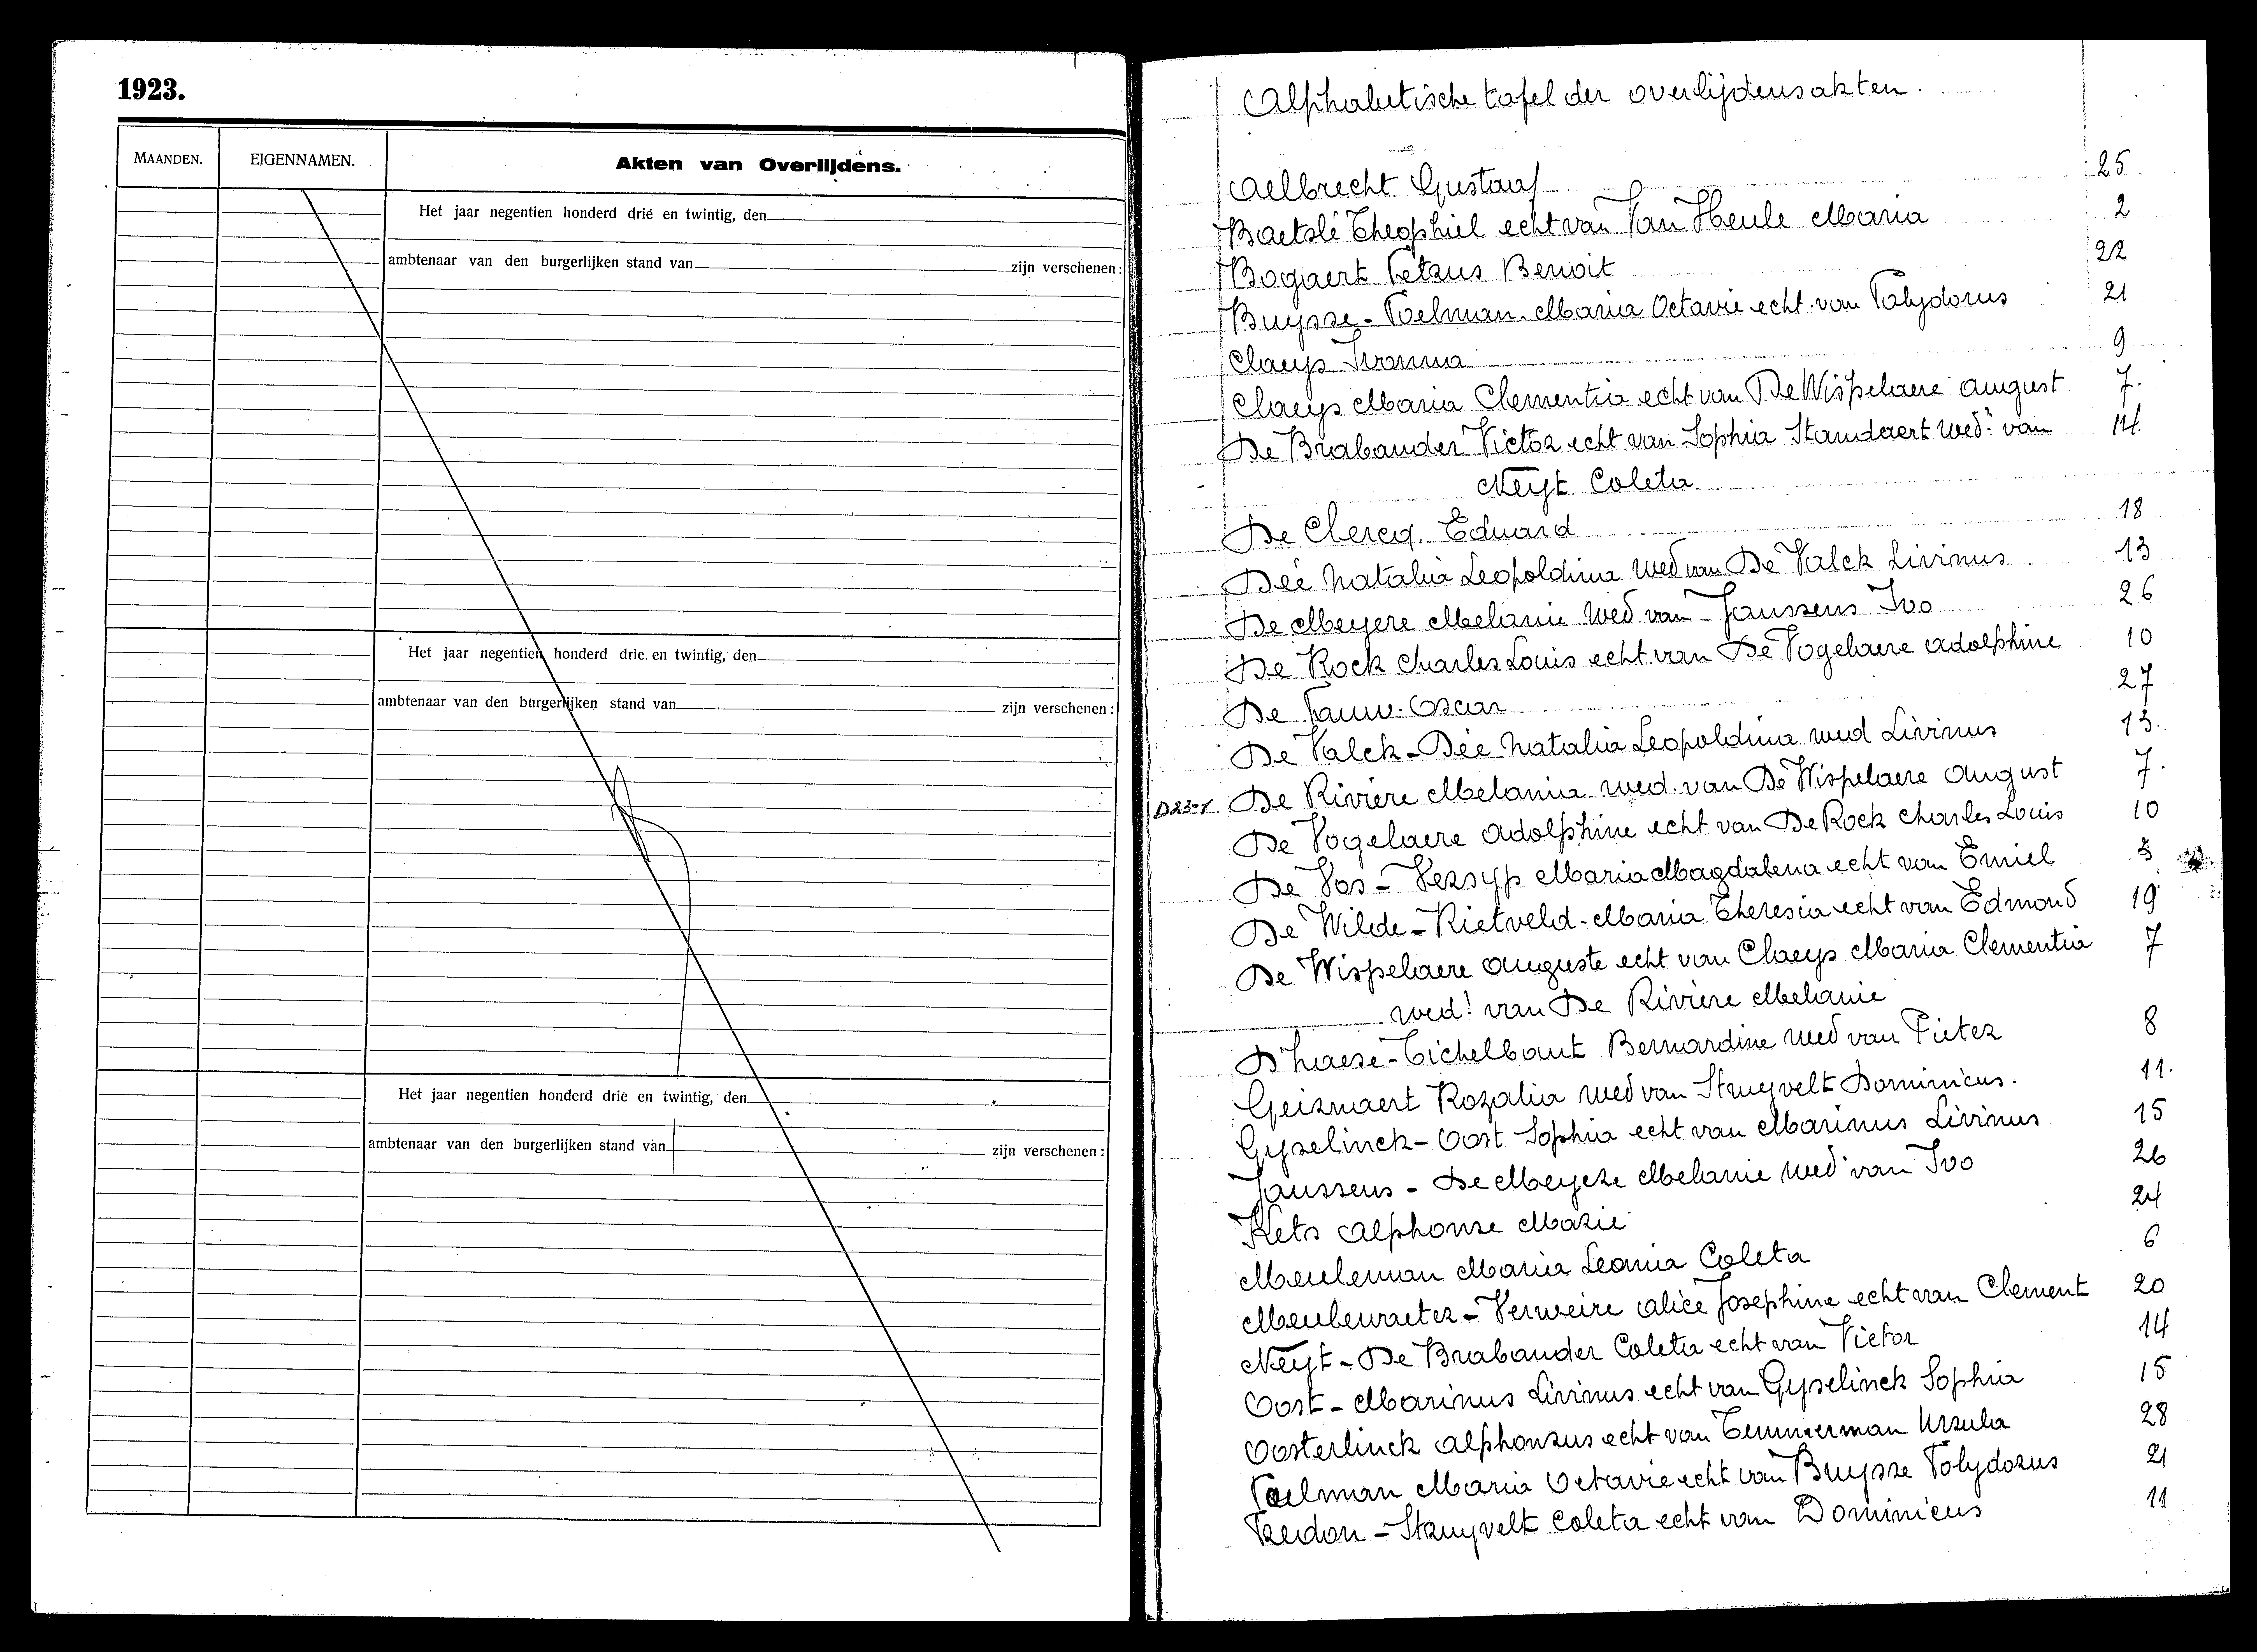 1923.
MAANDEN. EIGENNAMEN. Akten van Overlijdens.
Het jaar negentien honderd drie en twintig, den
ambtenaar van den burgerlijken stand van zijn verschenen:
Het jaar negentien honderd drie en twintig, den
ambtenaar van den burgerlijken stand van zijn verschenen:
Het jaar negentien honderd drie en twintig, den
ambtenaar van den burgerlijken stand van zijn verschenen:
Alphabetische tafel der overlijdensakten.
Aelbrecht Gustaaf 25
Baetslé Theophiel echt van Van Heule Maria 2
Bogaert Petrus Benoit 22
Buysse - Poelman - Maria Octavie echt. van Polydorus 21
Claeys Ivonna 9
Claeys Maria Clementia echt van De Wispelaere August 7.
De Brabander Victor echt van Sophia Standaert wed.r van 14.
Neyt Coleta
De Clercq. Eduard 18
Dee Natalia Leopoldina wed van De Valck Livinus 13
De Meyere Melanie wed van Janssens Ivo 26
De Rock Charles Louis echt. van De Vogelaere Adolphine 10
De Pauw. Oscar 27
De Valck - Dée Natalia Leopoldina wed Livinus 13.
D23-1 De Rivière Melania wed. van De Wispelaere August 7.
De Vogelaere Adolphine echt van De Rock Charles Louis 10
De Vos - Versyp Maria Magdalena echt van Emiel 3
De Wilde - Rietveld - Maria Theresia echt van Edmond 19
De Wispelaere Auguste echt van Claeys Maria Clementia 7
wed.r van De Rivière Melanie
D'haese - Tichelbaut Bernardine wed van Pieter 8
Geirnaert Rozalia wed van Struyvelt Dominicus. 11.
Gyselinck - Oost Sophia echt van Marinus Livinus 15
Janssens - De Meyere Melanie wed van Ivo 26
Kets Alphonse Marie 24
Meuleman Maria Leonia Coleta 6
Meulewaeter - Verweire Alice Josephine echt van Clement 20
Neyt - De Brabander Coleta echt van Victor 14
Oost - Marinus Livinus echt van Gyselinck Sophia 15
Oosterlinck Alphonsus echt van Temmerman Ursula 28
Poelman Maria Octavie echt van Buysse Polydorus 21
Struyvelt Coleta echt van Dominicus 11